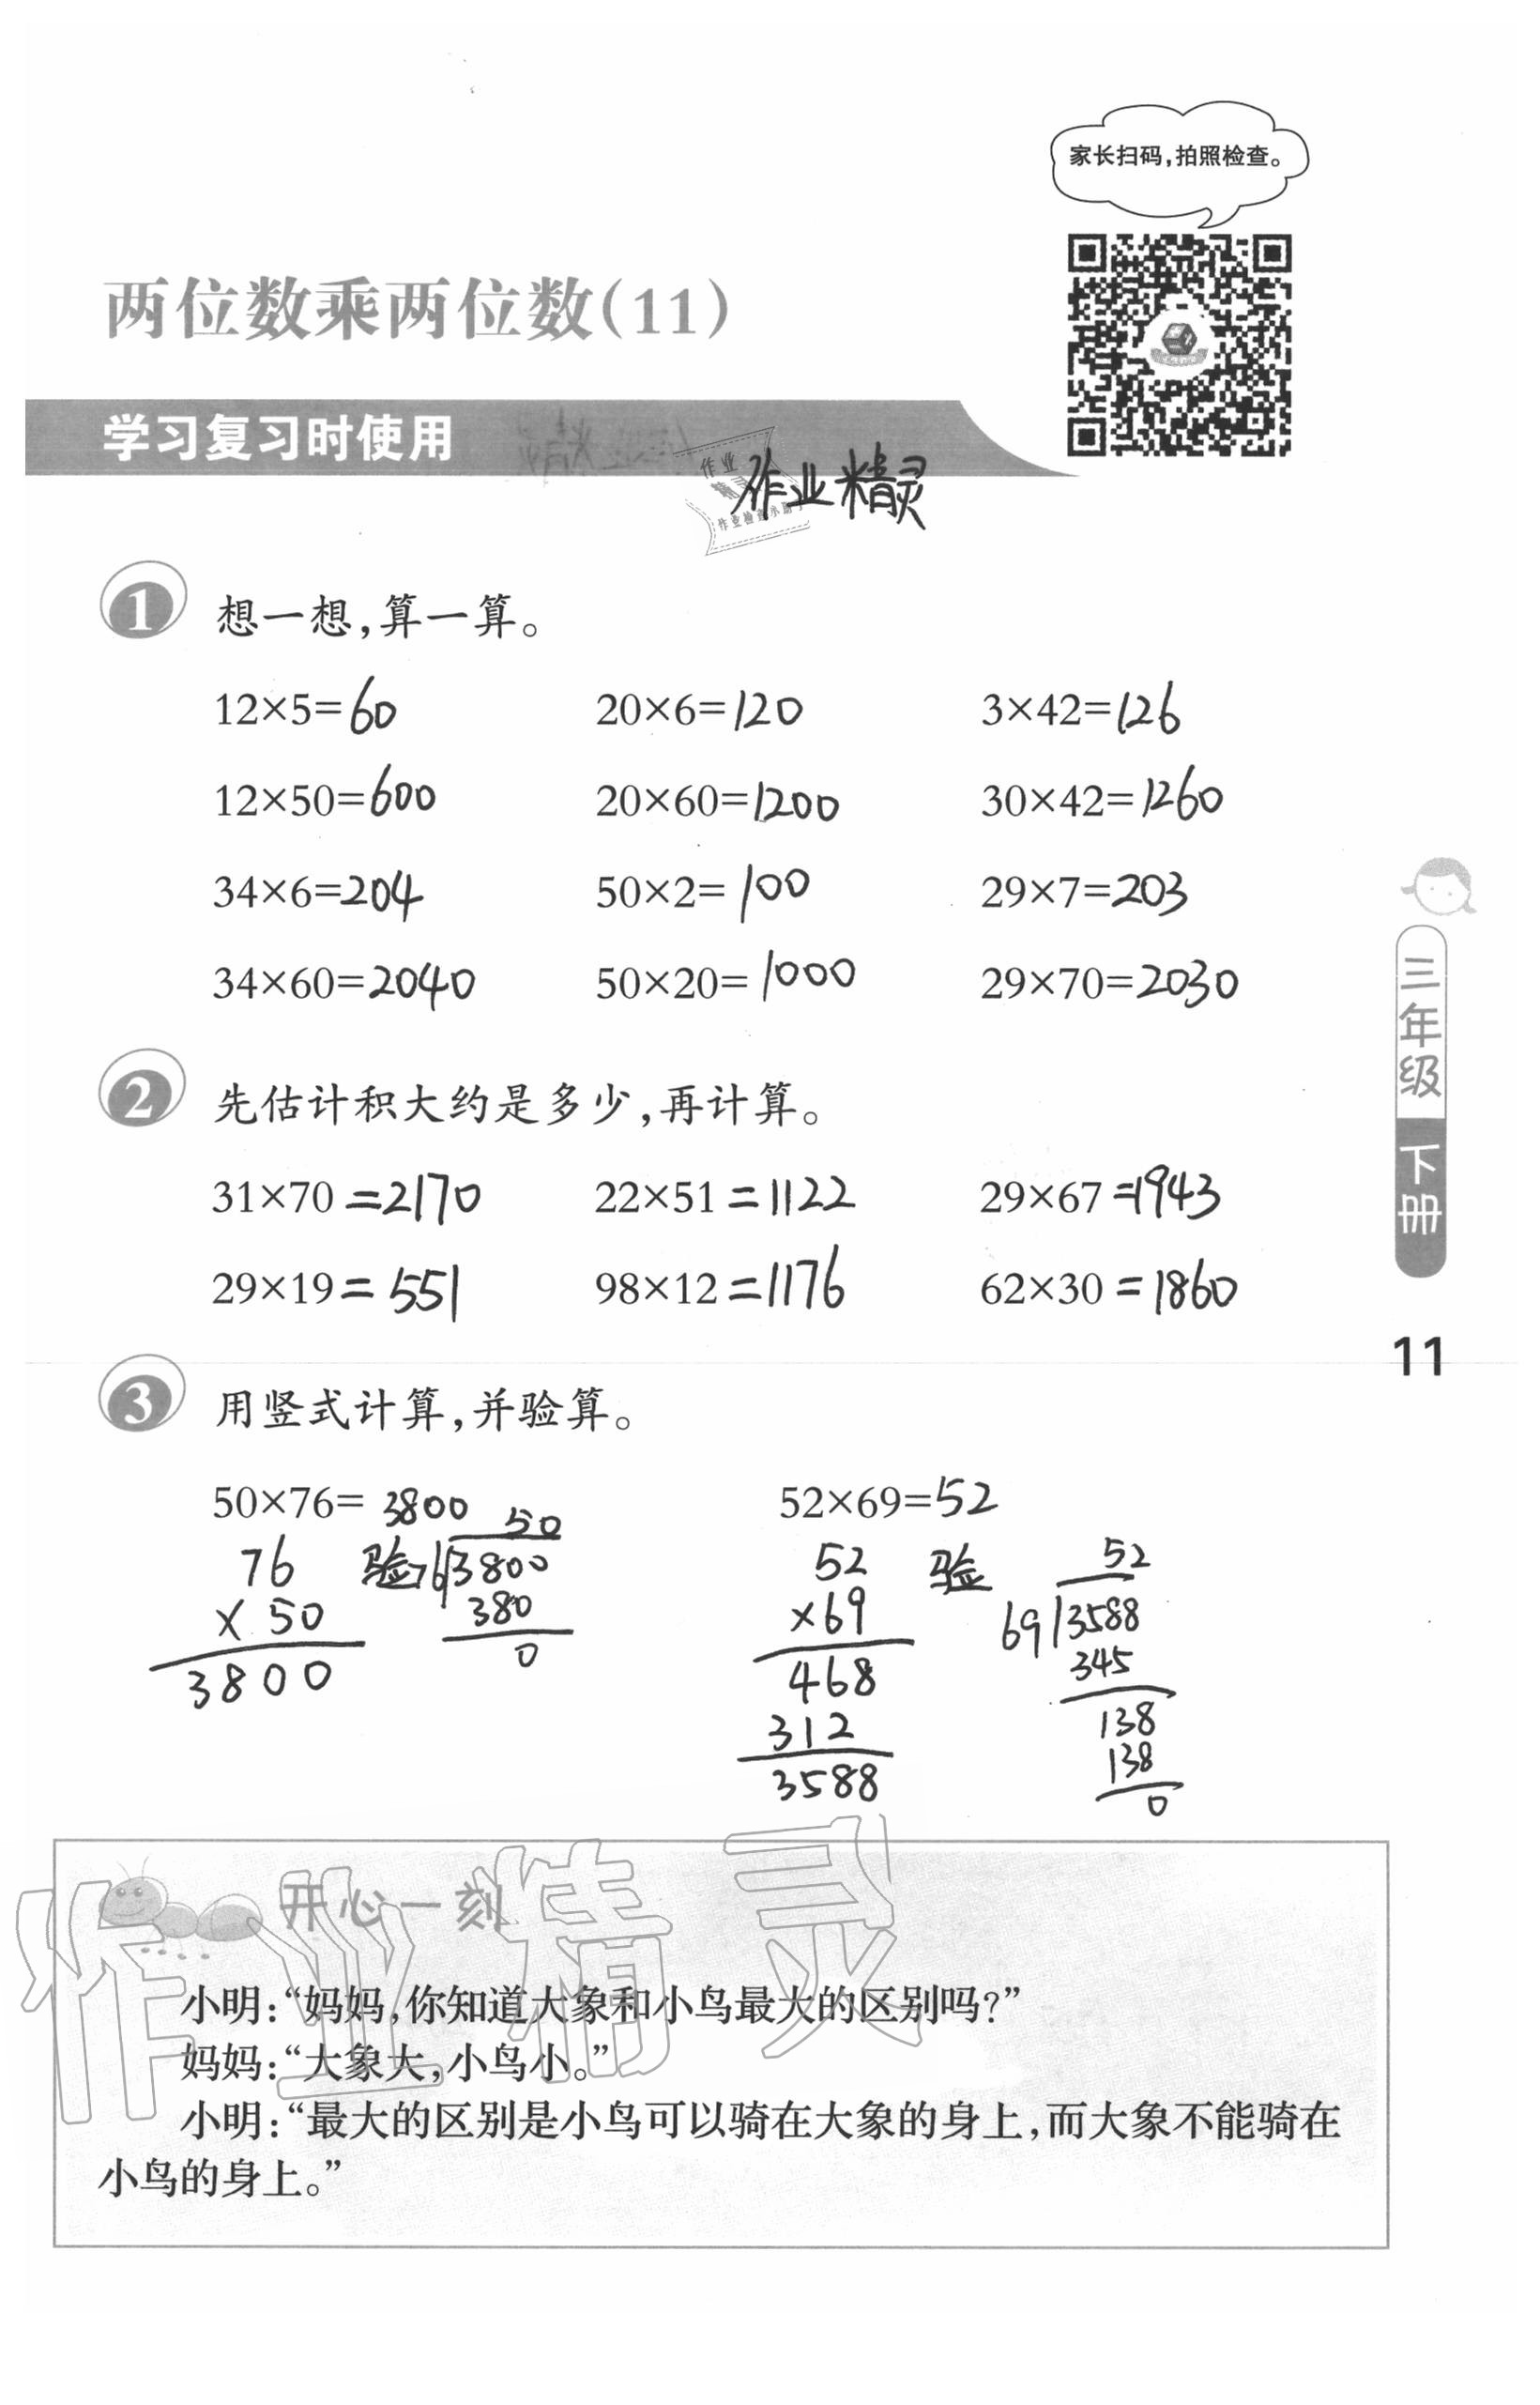 家长扫码，拍照检查。
两位数乘两位数(11)
学习复习时使用
作业
作业精灵
1 想一想，算一算。
12×5=60 20×6=120 3×42=126
12×50=600 20×60=1200 30×42=1260
34×6=204 50×2=100 29×7=203
34×60=2040 50×20=1000 29×70=2030
三年级 下册
2 先估计积大约是多少，再计算。
31×70=2170 22×51=1122 29×67=1943
29×19=551 98×12=1176 62×30=1860
11
3 用竖式计算，并验算。
50×76=3800 52×69=52
50
76 验76)3800
×50 380
3800 0
52 验 52
×69 69)3588
468 345
312 138
3588 138
0
开心一刻
小明：“妈妈，你知道大象和小鸟最大的区别吗？”
妈妈：“大象大，小鸟小。”
小明：“最大的区别是小鸟可以骑在大象的身上，而大象不能骑在
小鸟的身上。”
作业精灵